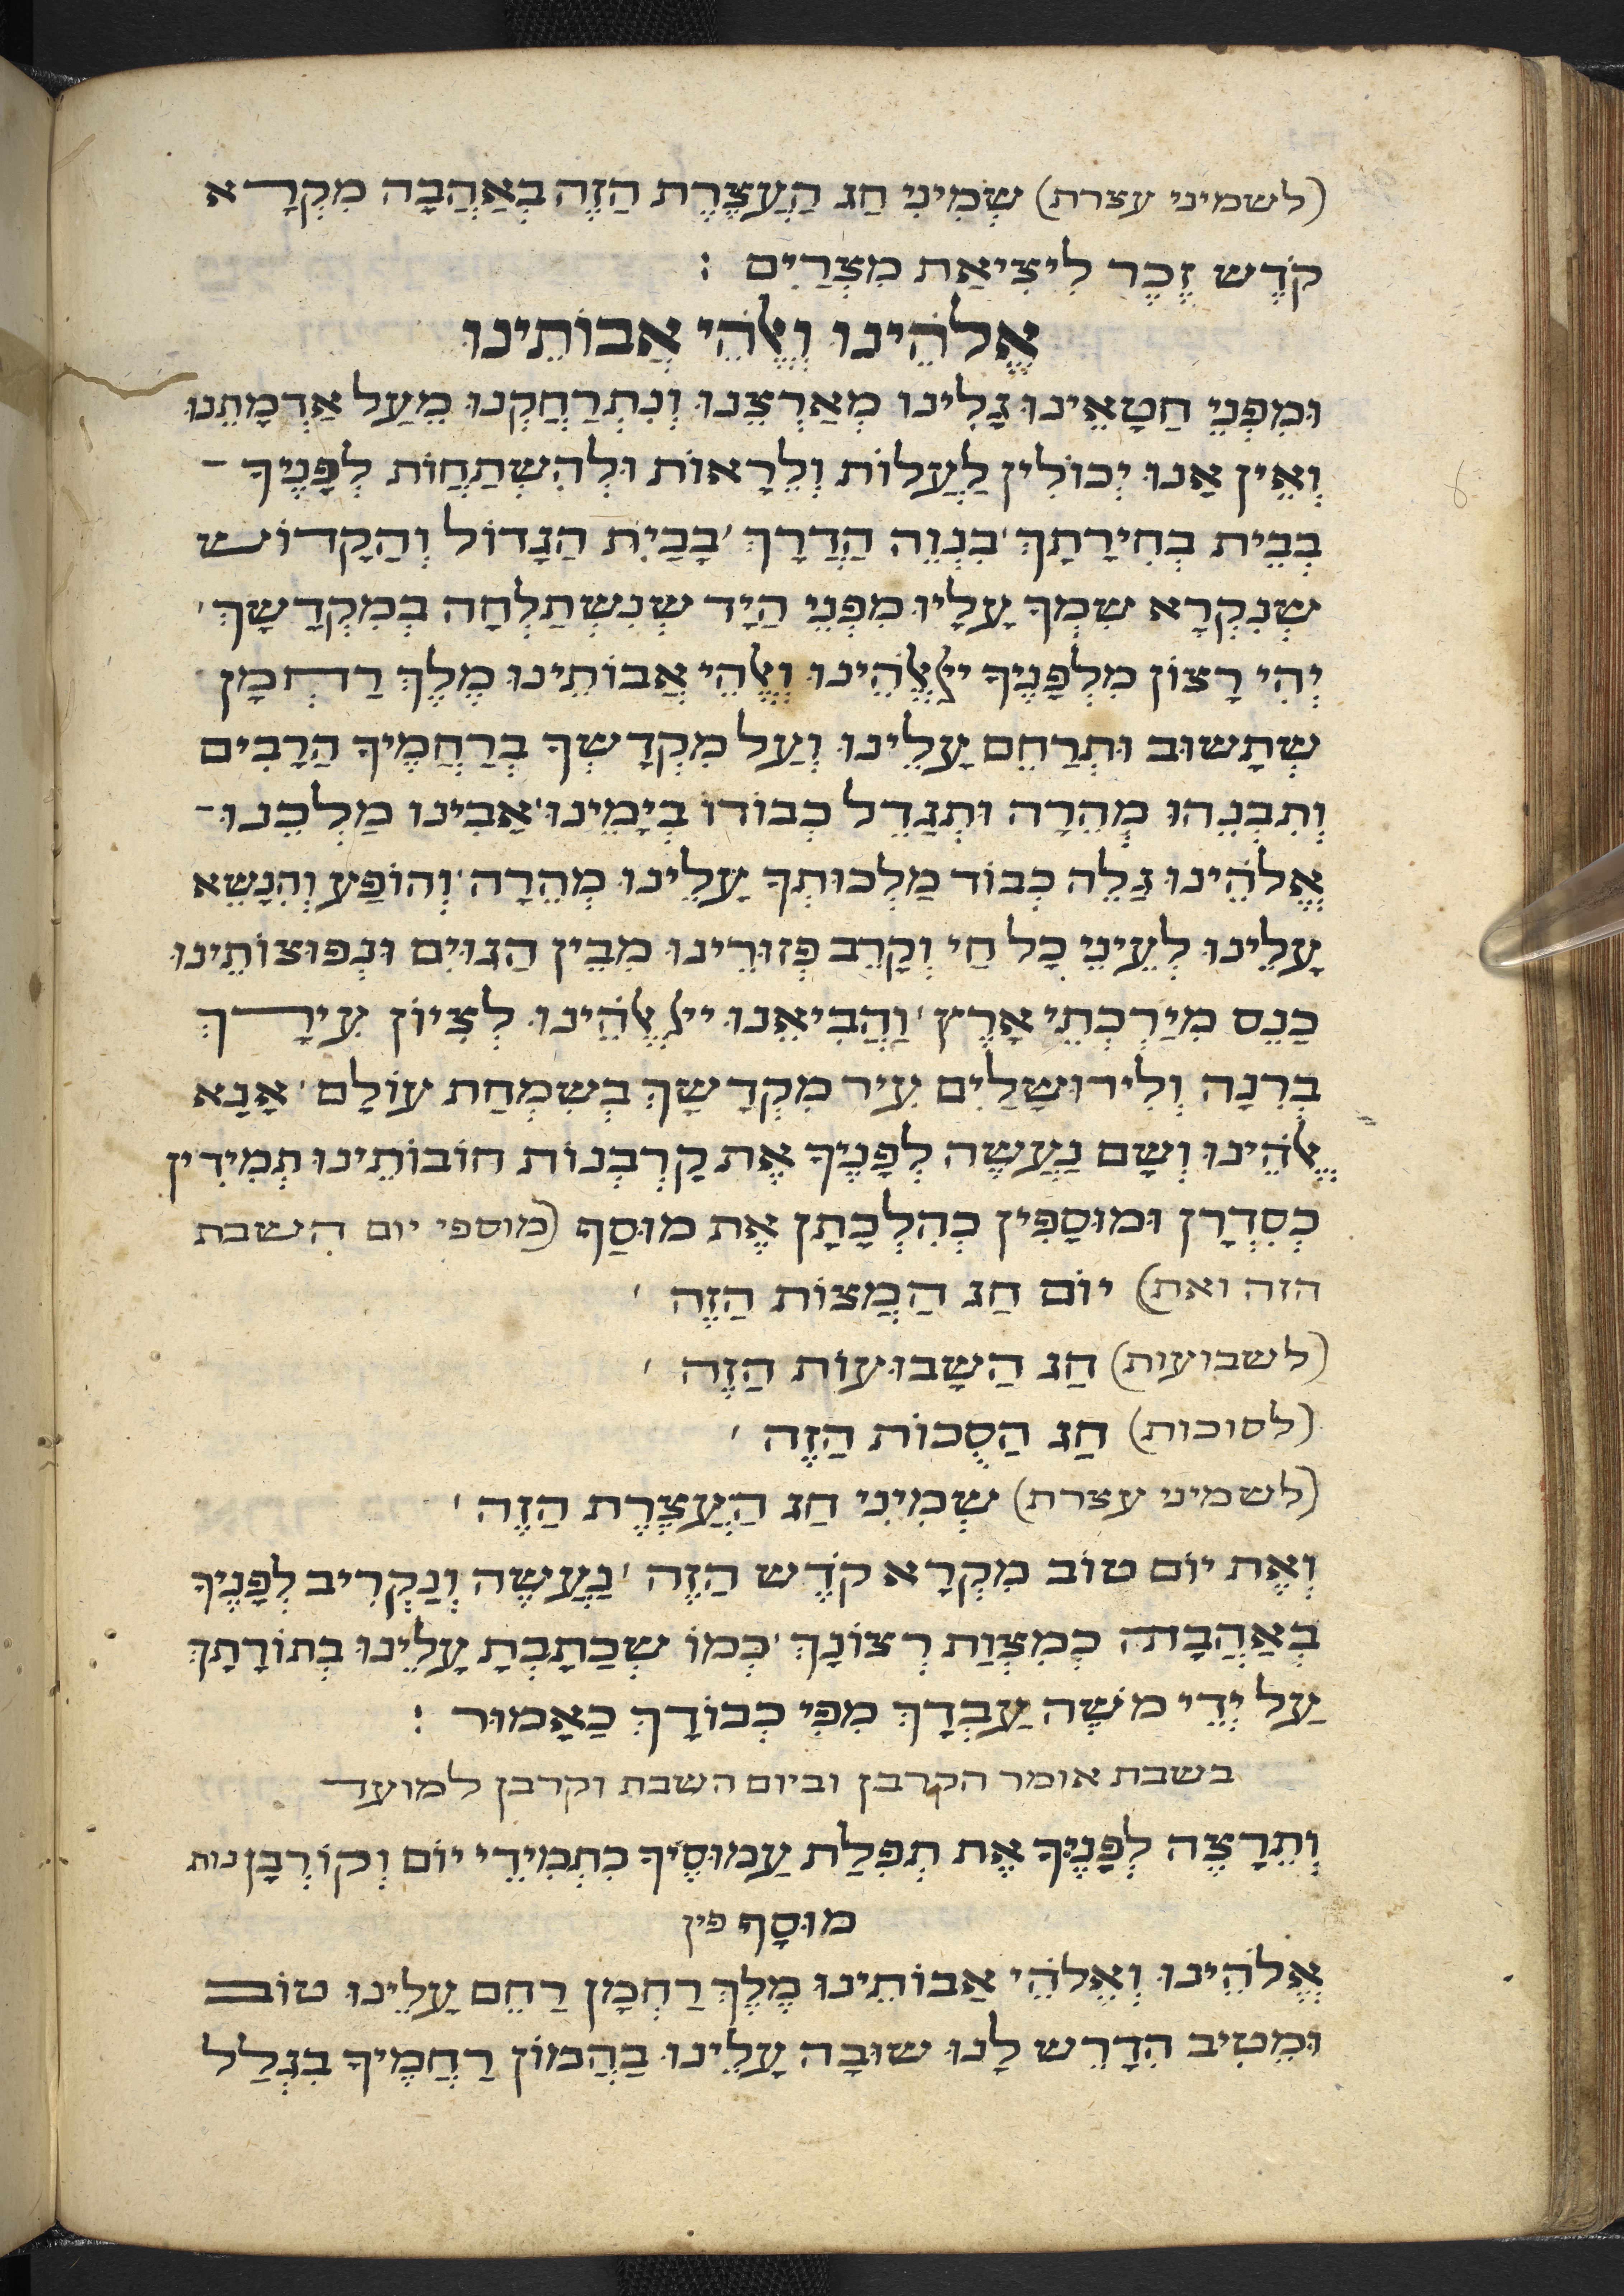 (לשמיני עצרת) שְׁמִינִי חַג הָעֲצֶרֶת הַזֶה בְּאַהֲבָה מִקְרָא
קֹדֶש זֶכֶר לִיצִיאַת מִצְרַיִם :
אֱלֹהֵינוּ וֶאֱלֹהֵי אֲבוֹתֵינוּ
וּמִפְנֵי חַטָאֵינוּ גָלִינוּ מְאַרְצֵנוּ וְנִתְרַחֲקְנוּ מֵעַל אַדְמָתֵנוּ
וְאֵין אַנוּ יְכוֹלִין לַעֲלוֹת וְלֵרָאוֹת וּלְהִשְתַחֲוֹת לְפָנֶיךָ -
בְּבֵית בְּחִירָתָךְ ׳ בִּנְוֵה הֲדָרָךְ ׳ בָּבַיִת הַגָדוֹל וְהַקָדוֹש
שְנִקְרָא שִמְךָ עָלָיו מִפְנֵי הַיָד שְנִשְתַלְחָה בְּמִקְדָשָךְ ׳
יְהִי רָצוֹן מִלְפָנֶיךָ יי אֱלֹהֵינוּ וֶאֱלֹהֵי אֲבוֹתֵינוּ מֶלֶךְ רַחְמָן
שְתָשוּב וּתְרַחֵם עָלֵינוּ וְעַל מִקְדָשְךָ בְּרַחֲמֶיךָ הַרָבִים
וְתִבְנֵהוּ מְהֵרָה וּתְגַדֵל כְּבוֹדוֹ בְּיָמֵינוּ ׳ אָבִינוּ מַלְכֵּנוּ -
אֱלֹהֵינוּ גַלֵה כְּבוֹד מַלְכוּתְךָ עָלֵינוּ מְהֵרָה ׳ וְהוֹפַע וְהִנָשֵא
עָלֵינוּ לְעֵינֵי כָּל חַי וְקָרֵב פְּזוּרֵינוּ מִבֵּין הַגוֹיִם וּנְפוּצוֹתֵינוּ
כַּנֵס מִיַרְכְתֵי אָרֶץ ׳ וַהֲבִיאֵנוּ יי אֱלֹהֵינוּ לְצִיוֹן עִירָךְ
בְּרִנָה וְלִירוּשָלַיִם עִיר מִקְדָשָךְ בְּשִמְחַת עוֹלָם ׳ אָנָא
אֱלֹהֵינוּ וְשָם נַעֲשֶה לְפָנֶיךָ אֶת קָרְבְּנוֹת חוֹבוֹתֵינוּ תְּמִידִין
כְּסִדְרָן וּמוּסָפִין כְּהִלְכָתָן אֶת מוּסַף (מוספי יום השבת
הזה ואת) יוֹם חַג הַמַצוֹת הַזֶה ׳
(לשבועות) חַג הַשָבוּעוֹת הַזֶה ׳
(לסוכות) חַג הַסֻכּוֹת הַזֶה ׳
(לשמיני עצרת) שְמִינִי חַג הָעֲצֶרֶת הַזֶה ׳
וְאֶת יוֹם טוֹב מִקְרָא קֹדֶש הַזֶה ׳ נַעֲשֶה וְנַקְרִיב לְפָנֶיךָ
בְּאַהֲבָה כְּמִצְוַת רְצוֹנָךְ ׳ כְּמוֹ שְכַתָבְתָ עָלֵינוּ בְּתוֹרָתָךְ
עַל יְדֵי מֹשֶה עַבְדָךְ מִפִּי כְּבוֹדָךְ כַּאָמוּר :
בשבת אומר הקרבן וביום השבת וקרבן למועד
וְתֵרָצֶה לְפָנֶיךָ אֶת תְפִלַת עֲמוּסֶיךָ כִּתְמִידֵי יוֹם וְקוֹרְבָּן נות
מוּסָף פין
אֱלֹהֵינוּ וְאֱלֹהֵי אַבוֹתֵינוּ מֶלֶךְ רַחְמָן רַחֵם עָלֵינוּ טוֹב
וּמֵטִיב הִדָרֵש לָנוּ שוּבָה עָלֵינוּ בַּהֲמוֹן רַחֲמֶיךָ בִּגְלַל